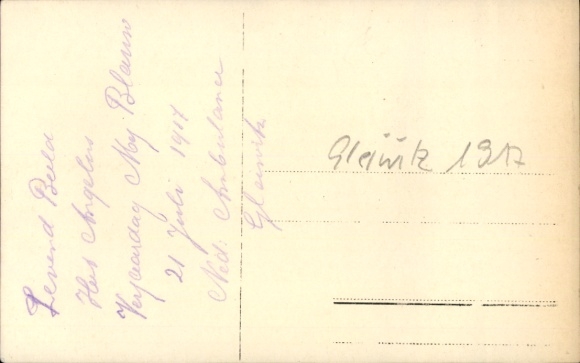 Levend Beeld
Het Angelus
Verjaardag Mej. Blaauw
21 Juli 1917
Ned: Ambulance
Gleiwitz
Gleiwitz 1917